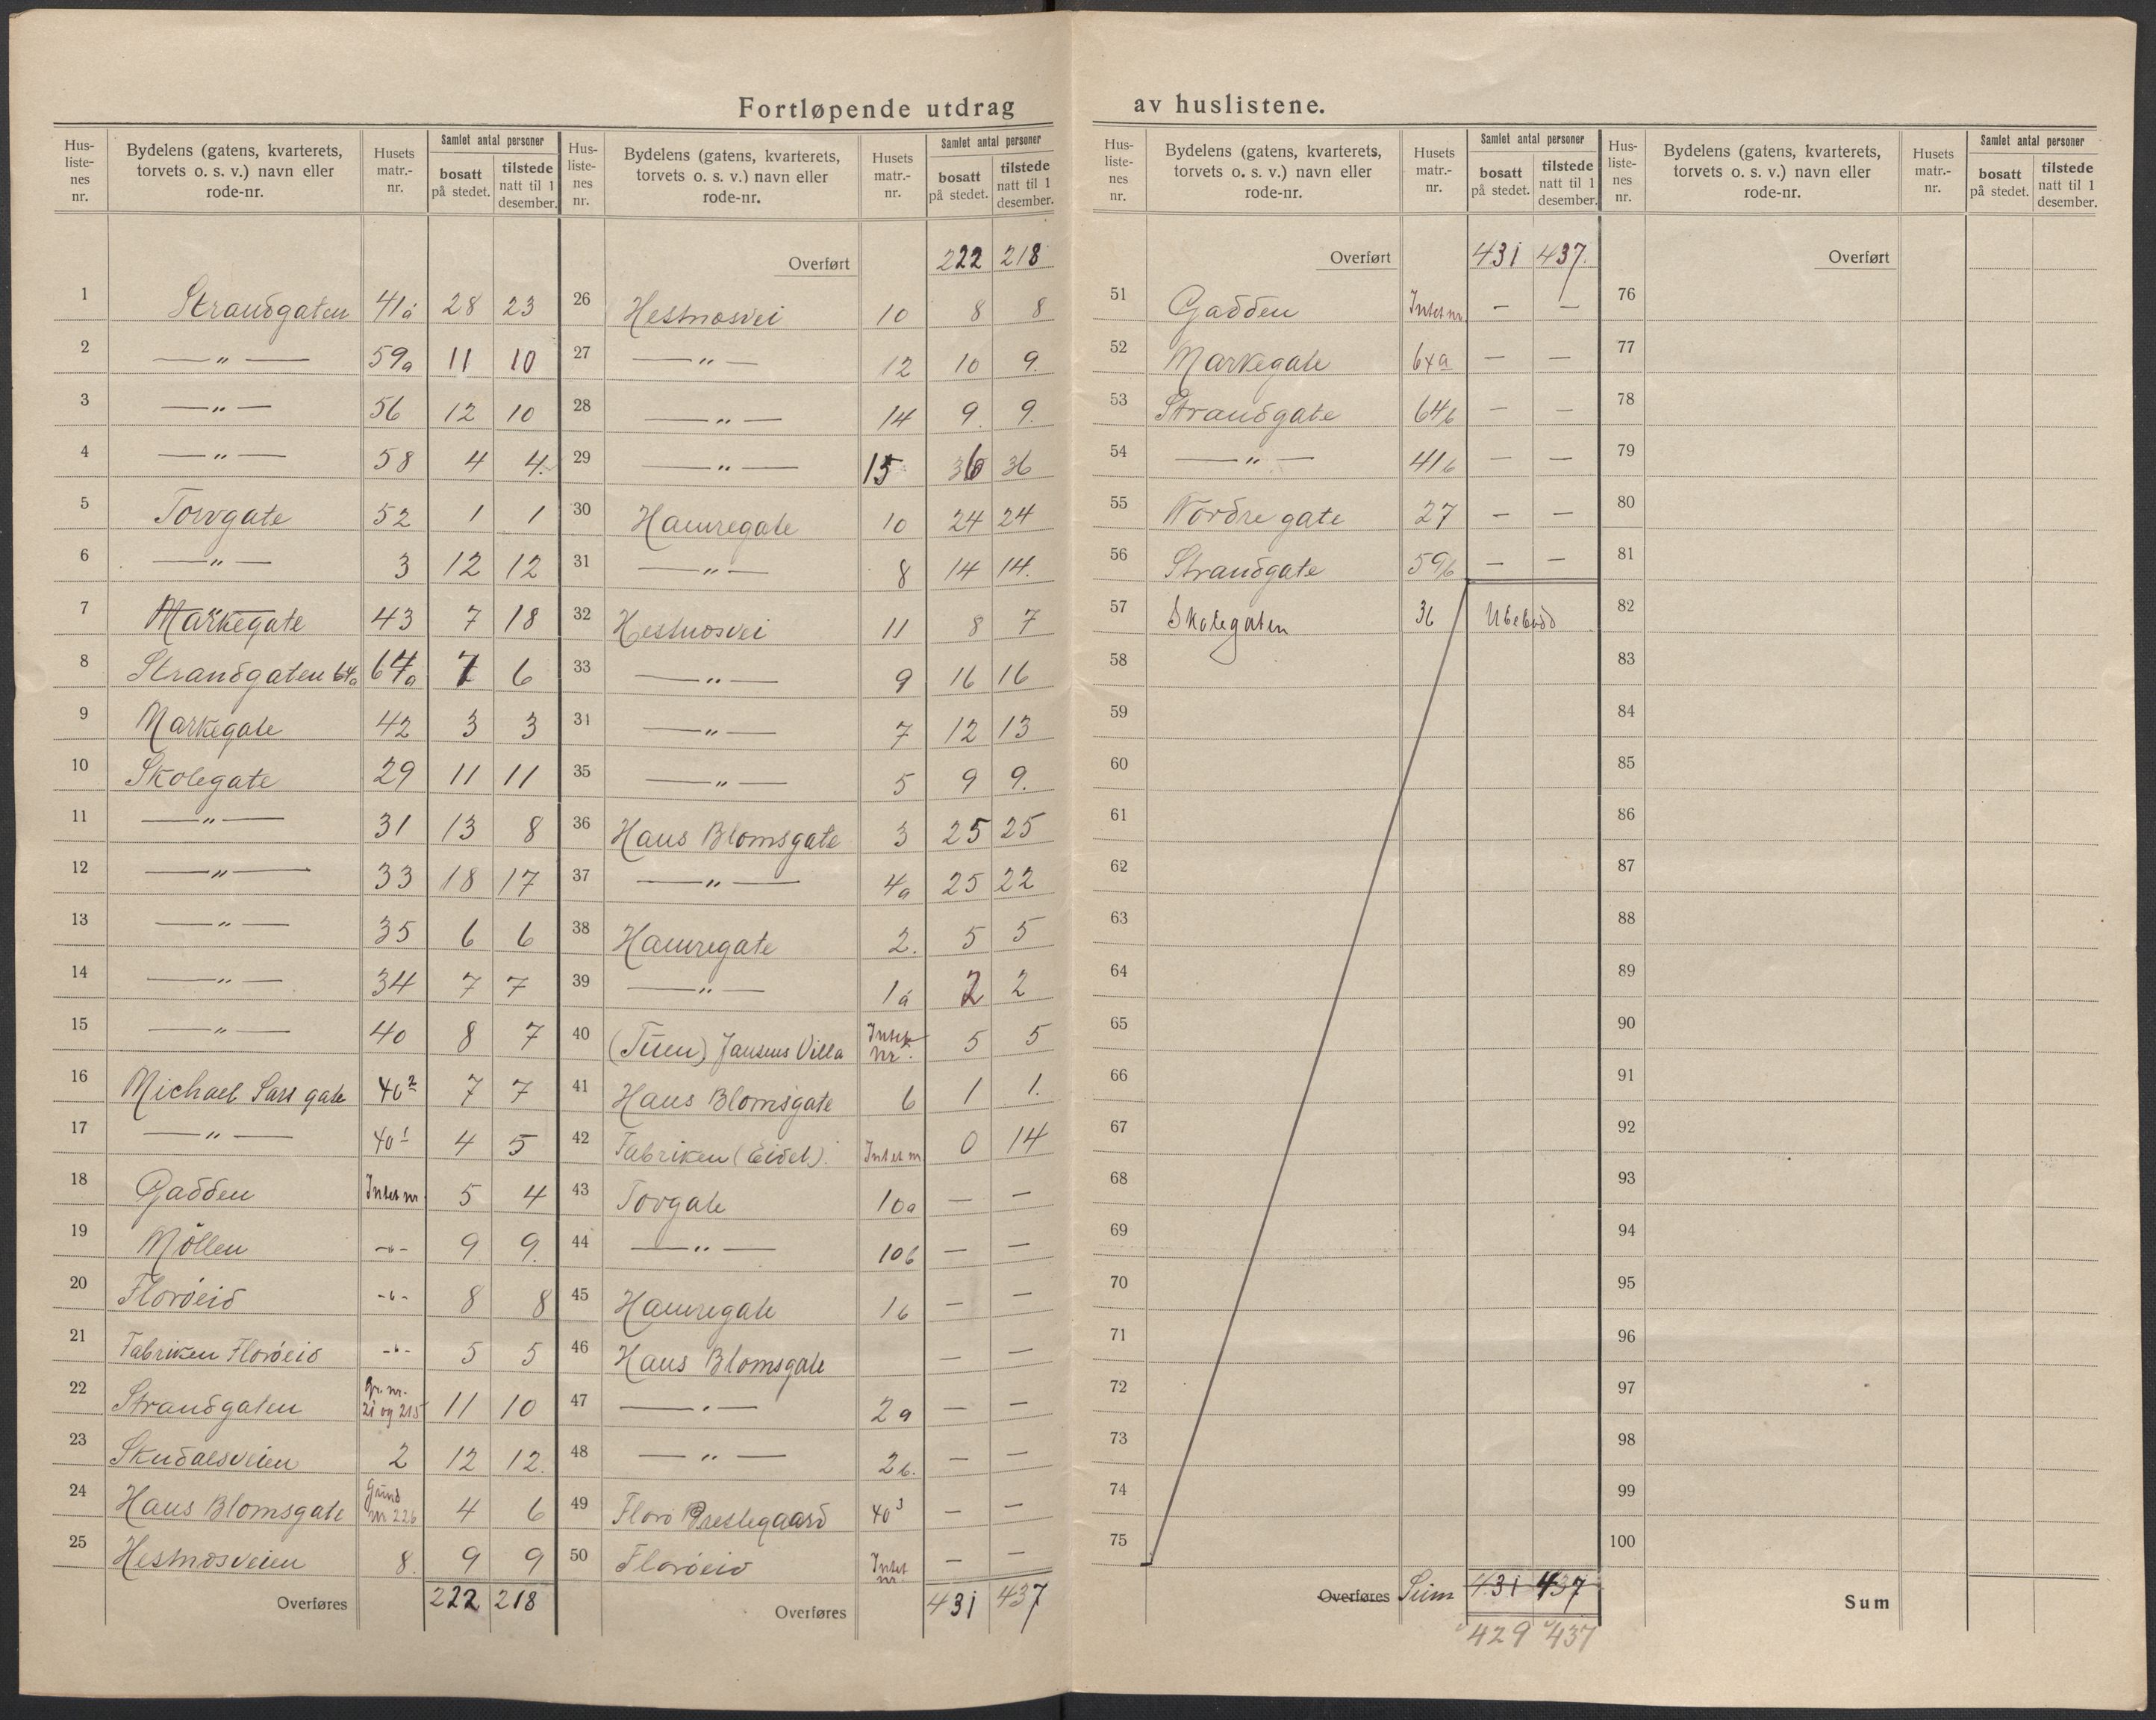 Fortløpende utdrag av huslistene.
Hus-liste-nes nr. | Bydelens (gatens, kvarterets, torvets o. s. v.) navn eller rode-nr. | Husets matr.-nr. | Samlet antal personer bosatt på stedet. | tilstede natt til 1 desember.
1 Strandgaten 41a 28 23
2 —„— 59a 11 10
3 —„— 56 12 10
4 —„— 58 4 4.
5 Torvgate 52 1 1
6 —„— 3 12 12
7 Markegate 43 7 18
8 Strandgaten 64a 64a 7 6
9 Markegate 42 3 3
10 Skolegate 29 11 11
11 —„— 31 13 8
12 —„— 33 18 17
13 —„— 35 6 6
14 —„— 34 7 7
15 —„— 40 8 7
16 Michael Sars gate 40² 7 7
17 —„— 40¹ 4 5
18 Gadden Intet nr. 5 4
19 Möllen -„- 9 9.
20 Florøeid -„- 8 8
21 Fabriken Florøeid -„- 5 5
22 Strandgaten Gr. nr. 21 og 215 11 10
23 Skudalsveien 2 12 12.
24 Hans Blomsgate Grund nr 226 4 6
25 Hestnæsveien 8. 9 9
Overføres 222 218
Hus-liste-nes nr. | Bydelens (gatens, kvarterets, torvets o. s. v.) navn eller rode-nr. | Husets matr.-nr. | Samlet antal personer bosatt på stedet. | tilstede natt til 1 desember.
Overført 222 218
26 Hestnæsvei 10 8 8
27 —„— 12 10 9.
28 —„— 14 9. 9.
29 —„— 15 36 36
30 Hamregate 10 24 24
31 —„— 8 14 14.
32 Hestnæsvei 11 8 7
33 —„— 9 16 16
34 —„— 7 12 13
35 —„— 5 9 9.
36 Hans Blomsgate 3 25 25
37 —„— 4a 25 22
38 Hamregate 2. 5 5
39 —„— 1a 2 2
40 (Tuen) Jansens Villa Intet nr. 5 5
41 Hans Blomsgate 6 1 1.
42 Fabriken (Eidet). Intet nr 0 14
43 Torvgate 10a — —
44 —„— 10b — —
45 Hamregate 1b — —
46 Hans Blomsgate — —
47 —„— 2a — —
48 —„— 2b. — —
49 Florø Prestegaard 40³ — —
50 Florøeid Intet nr. — —
Overføres 431 437
Hus-liste-nes nr. | Bydelens (gatens, kvarterets, torvets o. s. v.) navn eller rode-nr. | Husets matr.-nr. | Samlet antal personer bosatt på stedet. | tilstede natt til 1 desember.
Overført 431 437.
51 Gadden Intet nr. — —
52 Markegate 64a — —
53 Strandgate 64b — —
54 —„— 41b — —
55 Nordre gate 27 — —
56 Strandgate 59b — —
57 Skolegaten 36 Ubebodd
58
59
60
61
62
63
64
65
66
67
68
69
70
71
72
73
74
75
Overføres Sum 431 437
429 437
Hus-liste-nes nr. | Bydelens (gatens, kvarterets, torvets o. s. v.) navn eller rode-nr. | Husets matr.-nr. | Samlet antal personer bosatt på stedet. | tilstede natt til 1 desember.
Overført
76
77
78
79
80
81
82
83
84
85
86
87
88
89
90
91
92
93
94
95
96
97
98
99
100
Sum